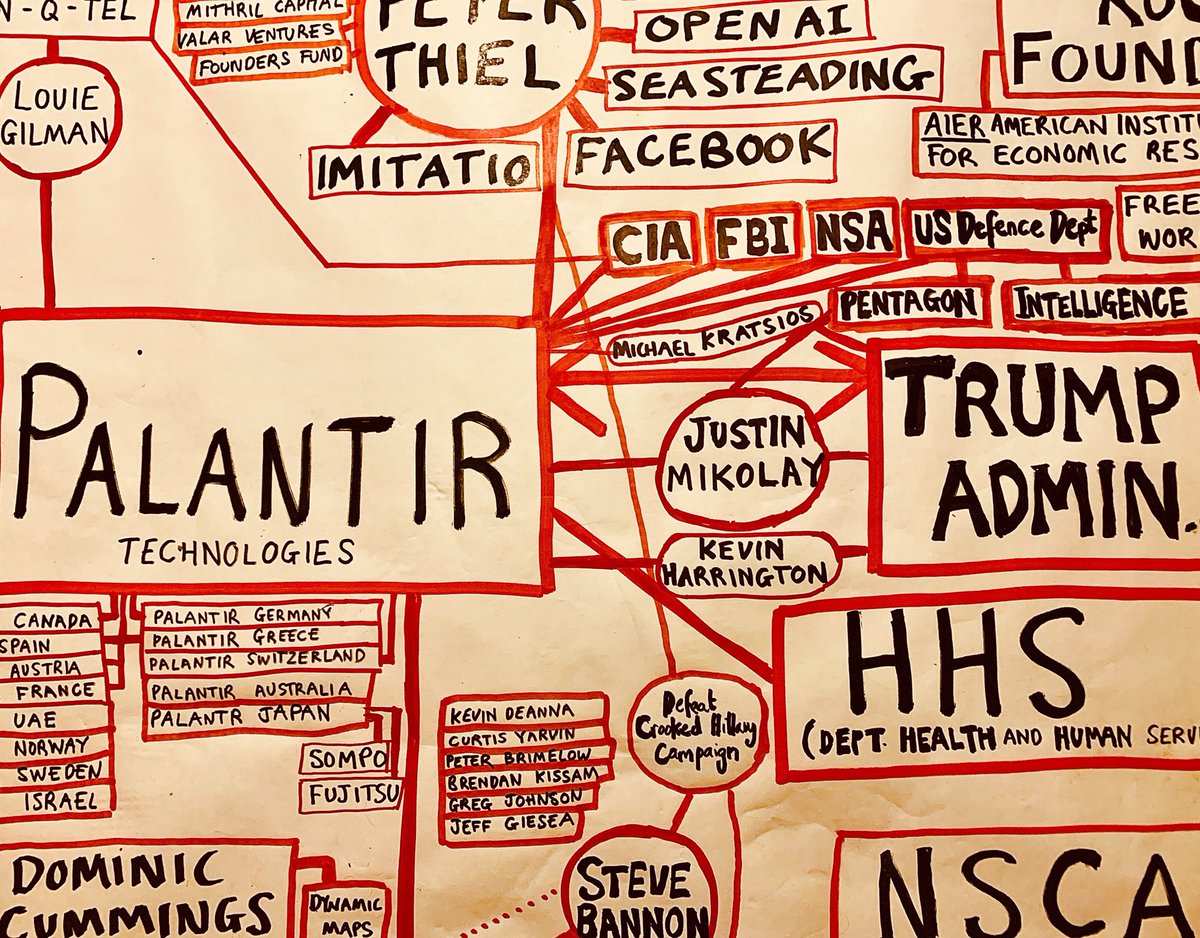 N-Q-TEL
MITHRIL CAPITAL
VALAR VENTURES
FOUNDERS FUND
PETER
THIEL
OPEN AI
SEASTEADING
FACEBOOK
IMITATIO
LOUIE
GILMAN
FOUND
AIER AMERICAN INSTIT
FOR ECONOMIC RES
CIA
FBI
NSA
US Defence Dept
FREE
WOR
PENTAGON
INTELLIGENCE
MICHAEL KRATSIOS
PALANTIR
TECHNOLOGIES
JUSTIN
MIKOLAY
TRUMP
ADMIN.
KEVIN
HARRINGTON
HHS
(DEPT. HEALTH AND HUMAN SERV
CANADA
SPAIN
AUSTRIA
FRANCE
UAE
NORWAY
SWEDEN
ISRAEL
PALANTIR GERMANY
PALANTIR GREECE
PALANTIR SWITZERLAND
PALANTIR AUSTRALIA
PALANTR JAPAN
SOMPO
FUJITSU
KEVIN DEANNA
CURTIS YARVIN
PETER BRIMELOW
BRENDAN KISSAM
GREG JOHNSON
JEFF GIESEA
Defeat
Crooked Hillary
Campaign
STEVE
BANNON
DOMINIC
CUMMINGS
DYNAMIC
MAPS
NSCA